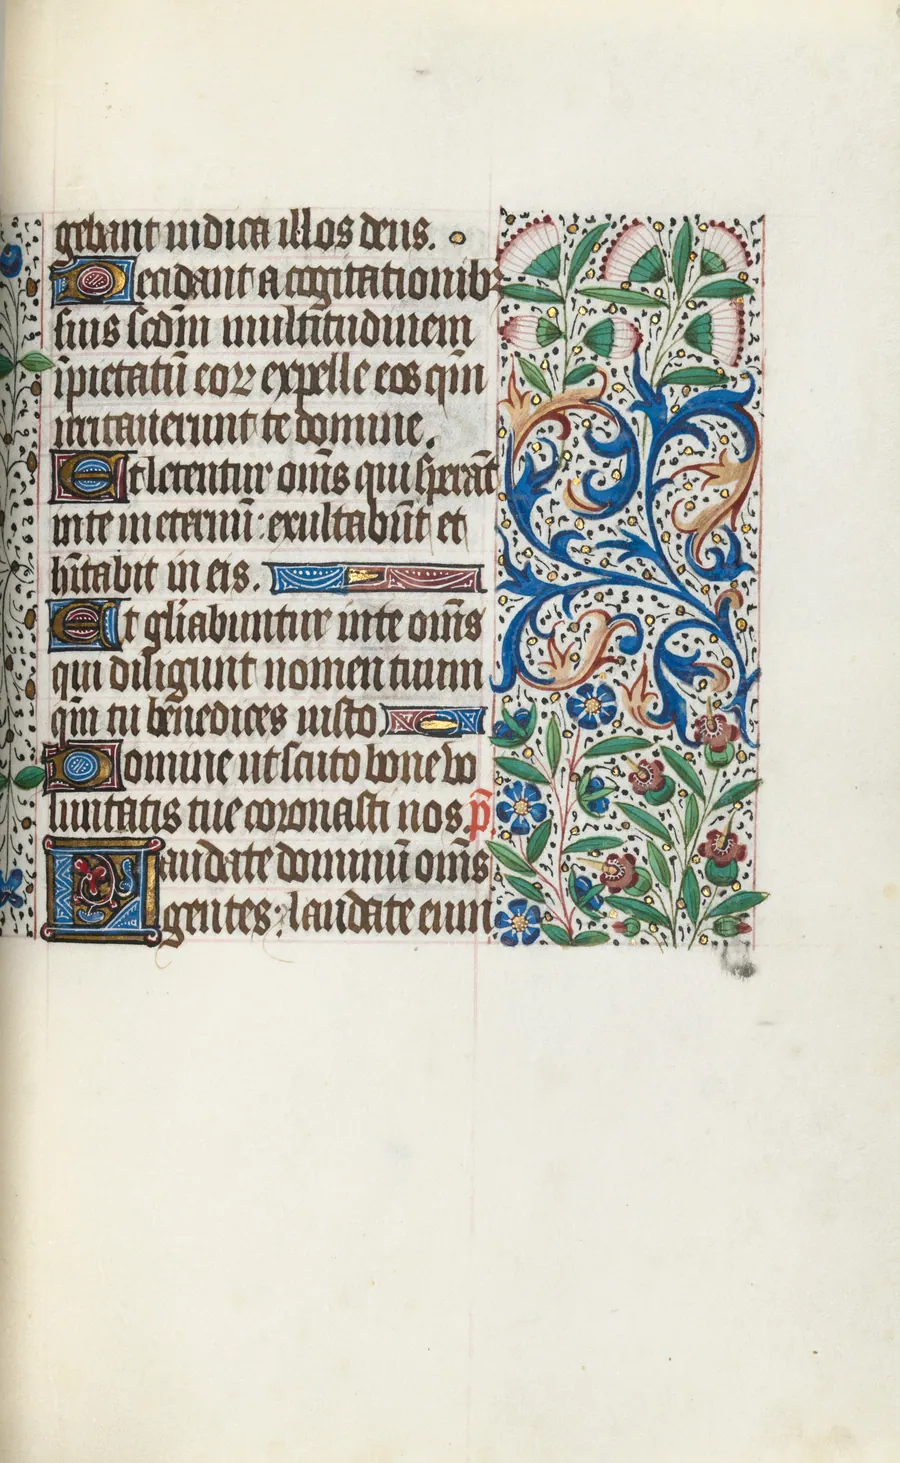 gebant iudica illos deus.
Decidant a cogitationib⁹
suis scd̄m multitudinem
īpietatū eoꝝ expelle eos qm̄
irritauerunt te domine.
Et letentur om̄s qui sperāt
in te in eternū: exultabūt et
hītabit in eis.
Et gl̄iabuntur in te om̄s
qui diligunt nomen tuum
qm̄ tu bn̄edices iusto
Domine ut scuto bone vo
luntatis tue coronasti nos p̄.
Laudate dominū om̄s
gentes: laudate eum